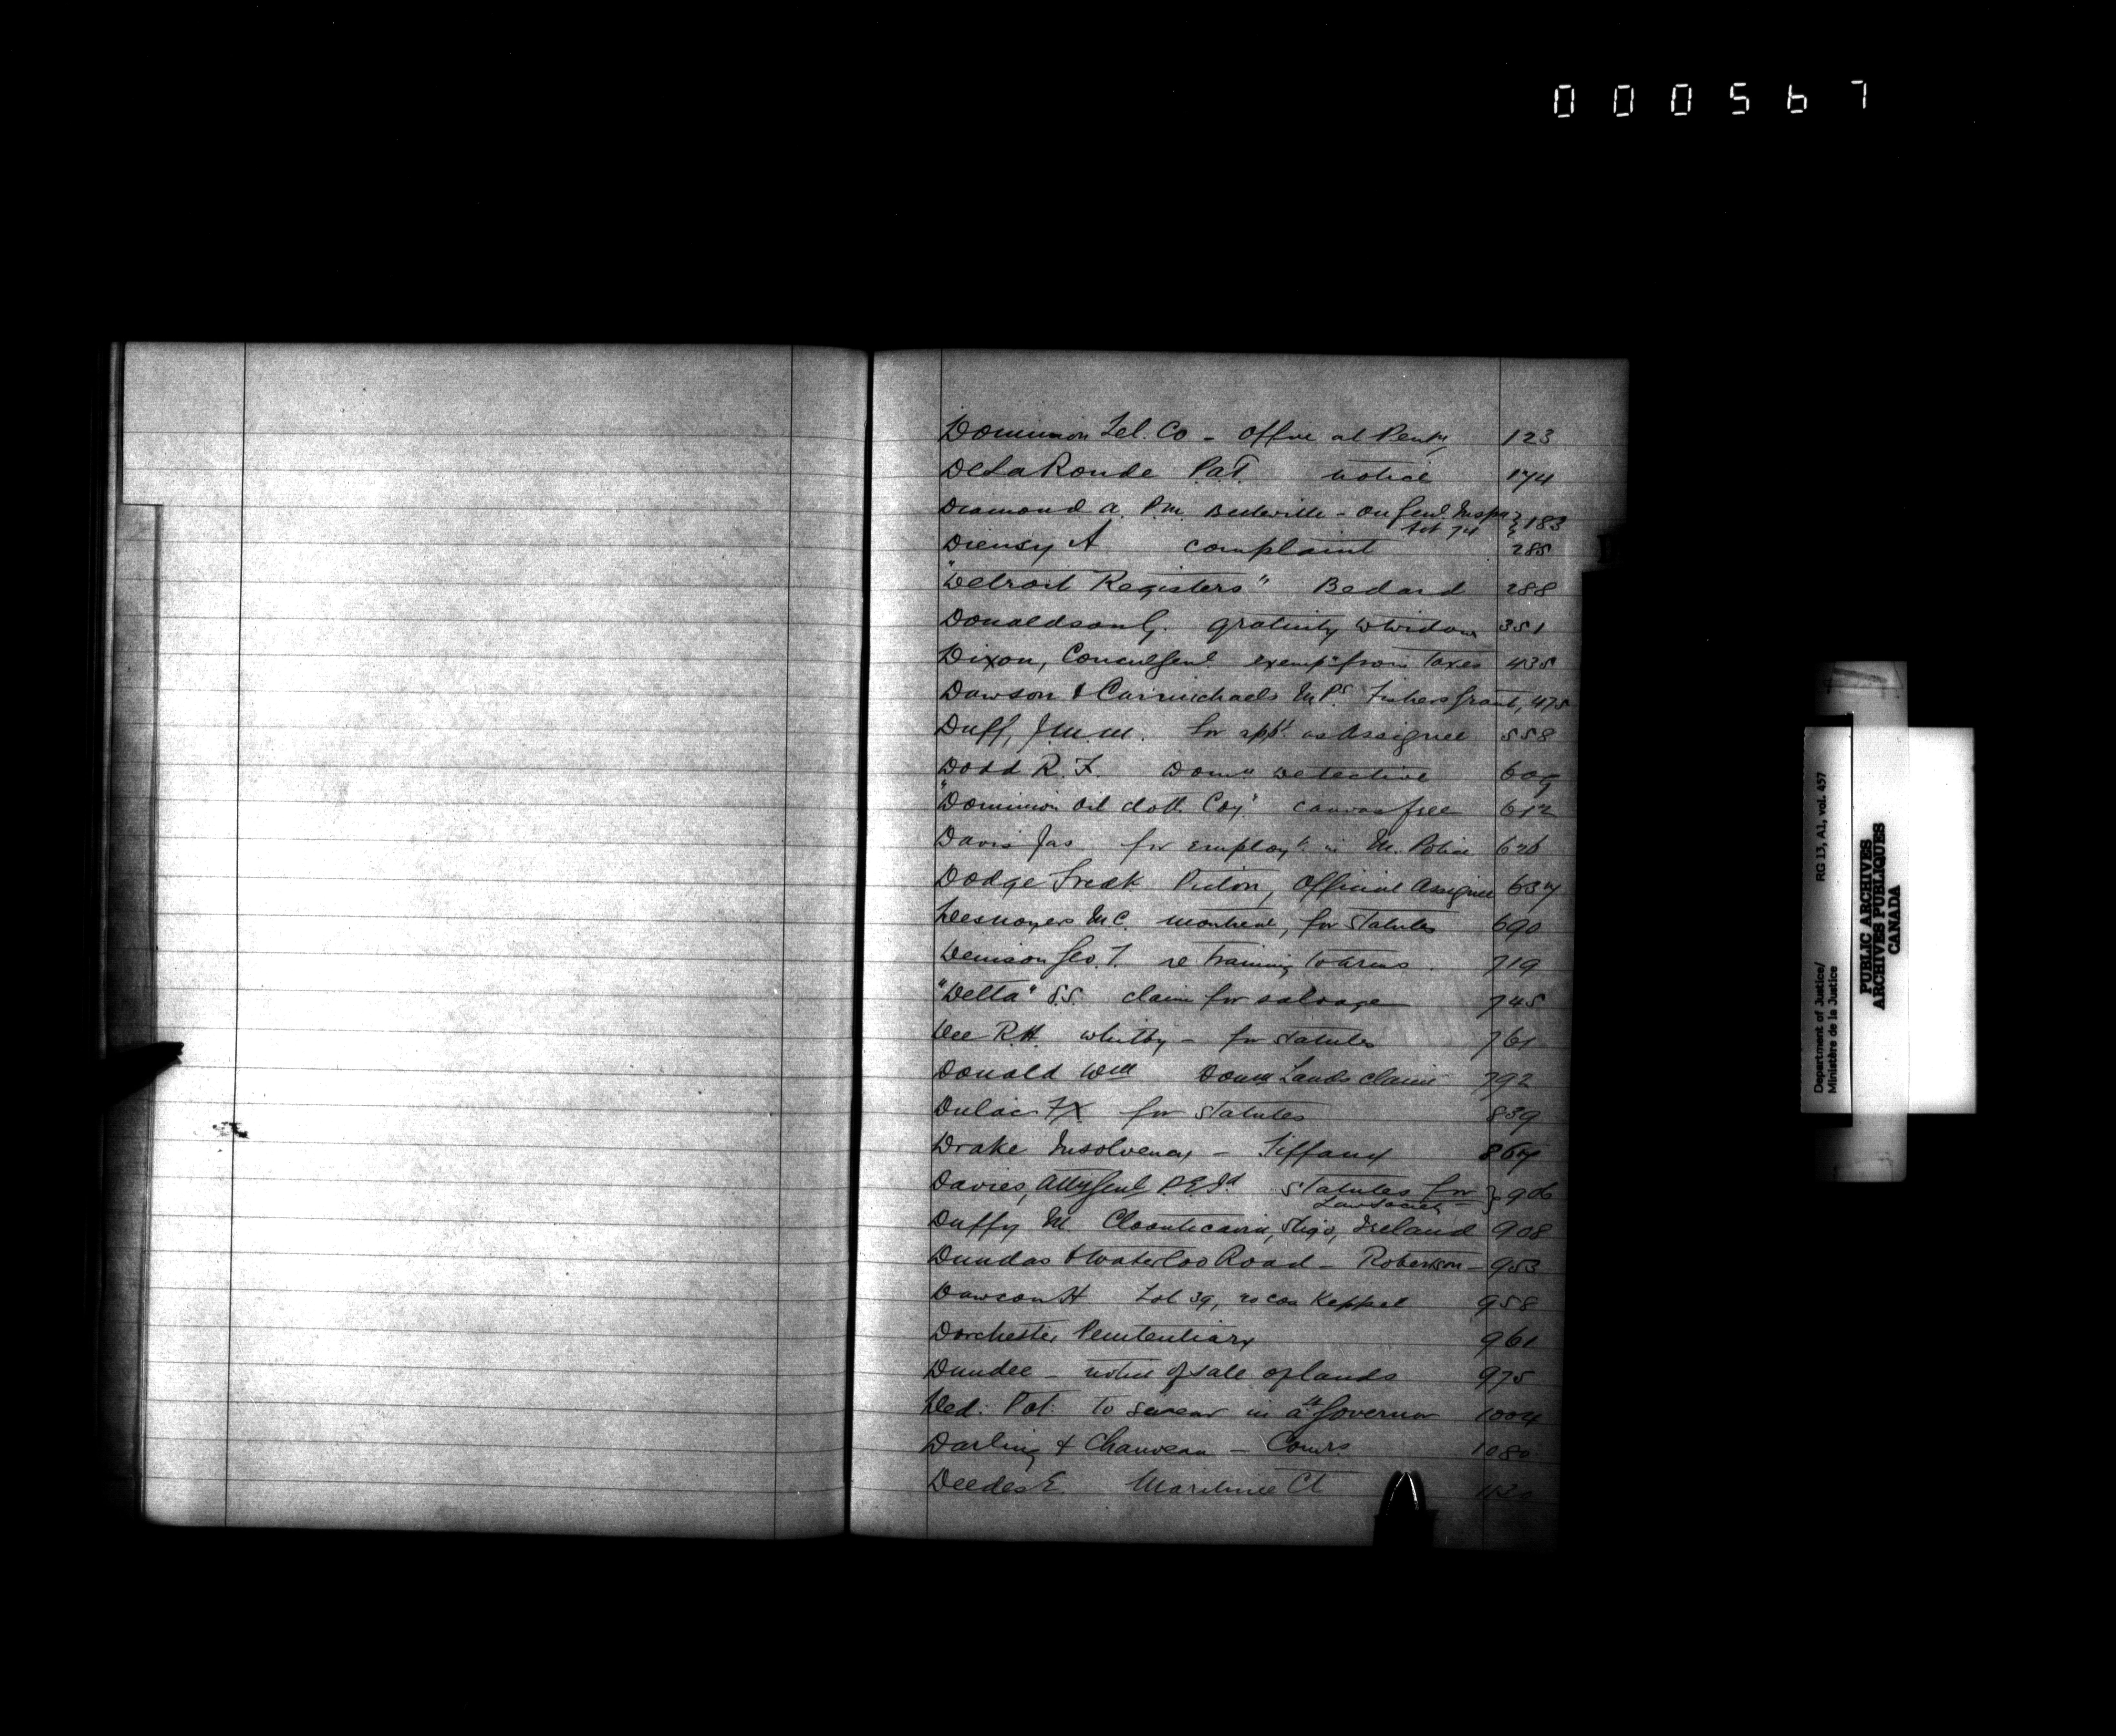 000567
Dominion Tel. Co - Office at Penty 123
DeLaRonde P.a.T. notice 174
Diamond A. P.M. Belleville - on Genl Inspn
Act 74 } 183
A complaint 285
"Detroit Registers" Bedard 288
Donaldson G. gratuity to widow 351
Dixon, Consul Genl exempn from taxes 435
Dawson & Carmichaels M.Ps. Fishers Grant, 475
Duff, J.M.M. for appt. as Assignee 558
Dodd R. F. Domn Detective 605
"Dominion Oil cloth Coy" canvas free 612
Davis Jas for employt. in M. Police 626
Dodge Fredk Picton, Official Assignee 634
Desnoyers M.C. Montreal, for Statutes 690
Denison Geo. T. re training to arms 719
"Delta" S.S. claim for salvage 745
Dee R.H. Whitby - for Statutes 761
Donald Wm Domn Lands claim 792
Dulac FX for Statutes 839
Drake Insolvency - Tiffany 864
Davies, Atty Genl P.E.Id Statutes for
Law Society - } 906
Duffy M. Sligo, Ireland 908
Dundas & Waterloo Road - Robertson - 953
Dawson H Lot 39, 20 con Keppel 958
Dorchester Penitentiary 961
Dundee - notice of sale of lands 975
Ded: Pot: to swear in a Lt Governor 1004
Darling & Chauveau - Comrs 1080
Deedes E. Maritime Ct
Department of Justice/ RG 13, A1, vol. 457
Ministère de la Justice
PUBLIC ARCHIVES
ARCHIVES PUBLIQUES
CANADA